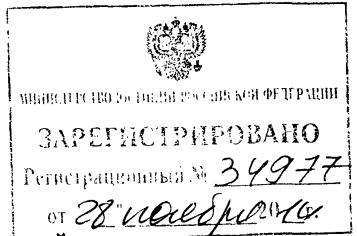 МИНИСТЕРСТВО ЮСТИЦИИ РОССИЙСКОЙ ФЕДЕРАЦИИ
ЗАРЕГИСТРИРОВАНО
Регистрационный № 34977
от "28" ноября 20